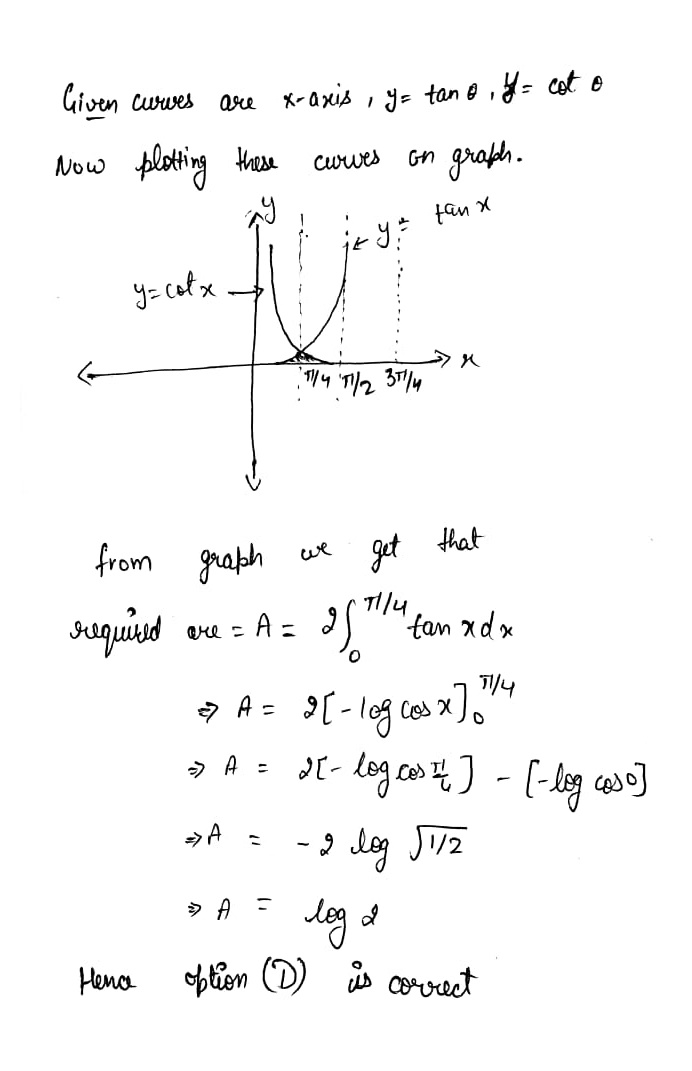 Given curves are x-axis, y= tan θ, y= cot θ
Now plotting these curves on graph.
y
y= tan x
y=cot x
x
π/4 π/2 3π/4
from graph we get that
required are = A = 2∫₀^π/4 tan x dx
⇒ A = 2[-log cos x]₀^π/4
⇒ A = 2[- log cos π/4] - [-log cos 0]
⇒ A = - 2 log √1/2
⇒ A = log 2
Hence option (D) is correct